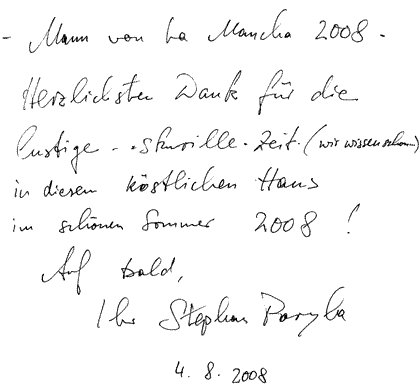 - Mann von La Mancha 2008 -
Herzlichsten Dank für die
lustige - skurille - Zeit (wir wissen schon)
in diesem köstlichen Haus
im schönen Sommer 2008 !
Auf bald,
Ihr Stephan Paryla
4. 8. 2008